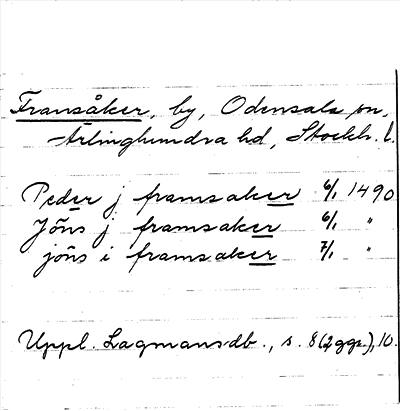 Fransåker, by, Odensala sn,
Ärlinghundra hd, Stockh. l.
Peder j framsaker 6/1 1490
Jöns j framsaker 6/1 "
jöns i framsaker 7/1 "
Uppl. Lagmansdb., s. 8 (2 ggr), 10.